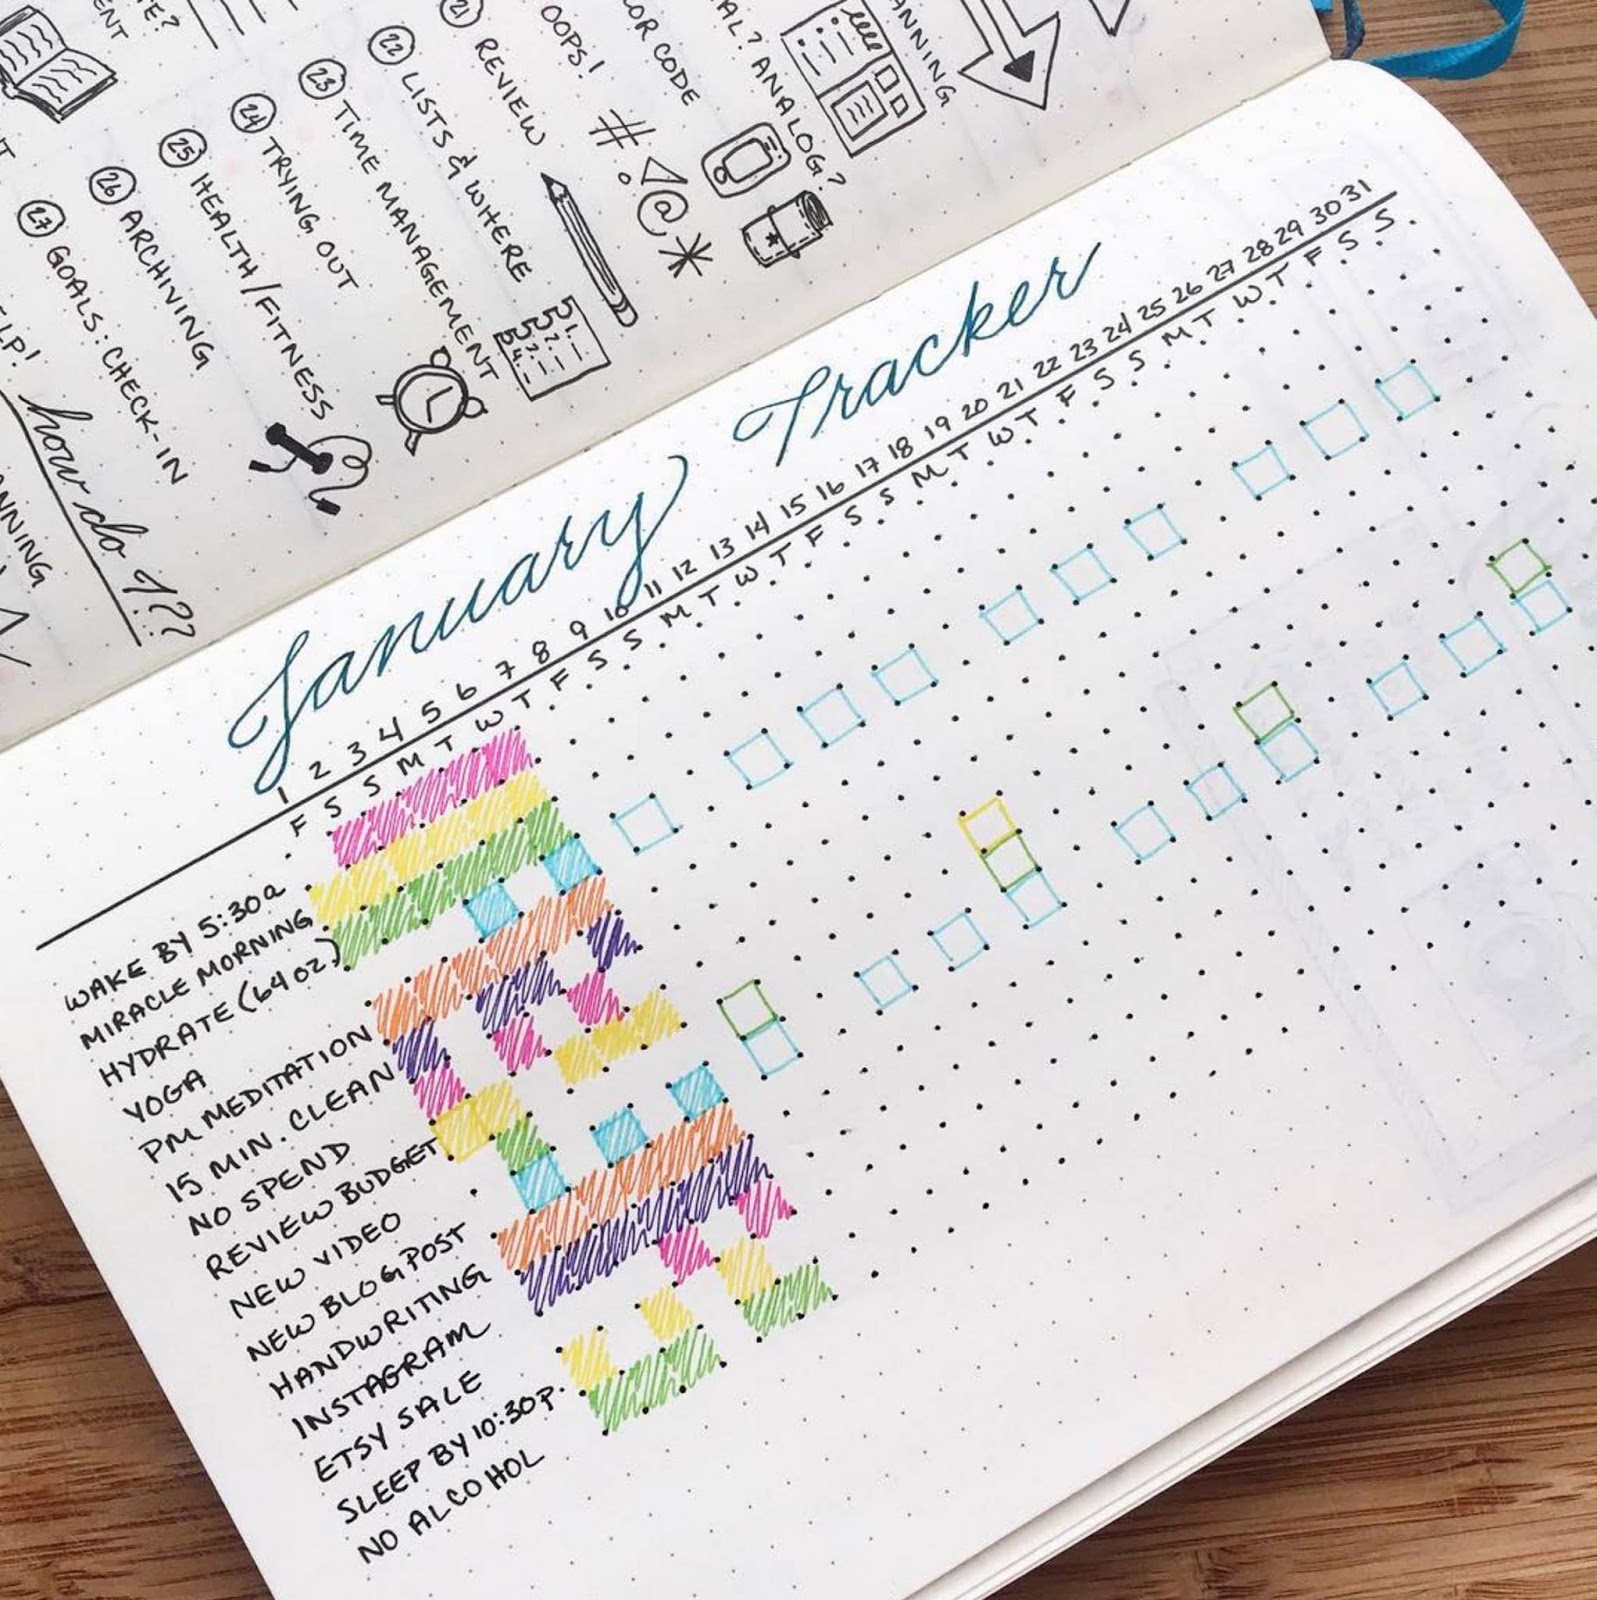 21 REVIEW
OOPS!
22 LISTS & WHERE
23 TIME MANAGEMENT
24 TRYING OUT
25 HEALTH/FITNESS
26 ARCHIVING
27 GOALS: CHECK-IN
ANALOG?
how do I??
January Tracker
1 2 3 4 5 6 7 8 9 10 11 12 13 14 15 16 17 18 19 20 21 22 23 24 25 26 27 28 29 30 31
F S S M T W T F S S M T W T F S S M T W T F S S M T W T F S S
WAKE BY 5:30a
MIRACLE MORNING
HYDRATE (64 oz)
YOGA
PM MEDITATION
15 MIN. CLEAN
NO SPEND
REVIEW BUDGET
NEW VIDEO
NEW BLOG POST
HANDWRITING
INSTAGRAM
ETSY SALE
SLEEP BY 10:30p.
NO ALCOHOL